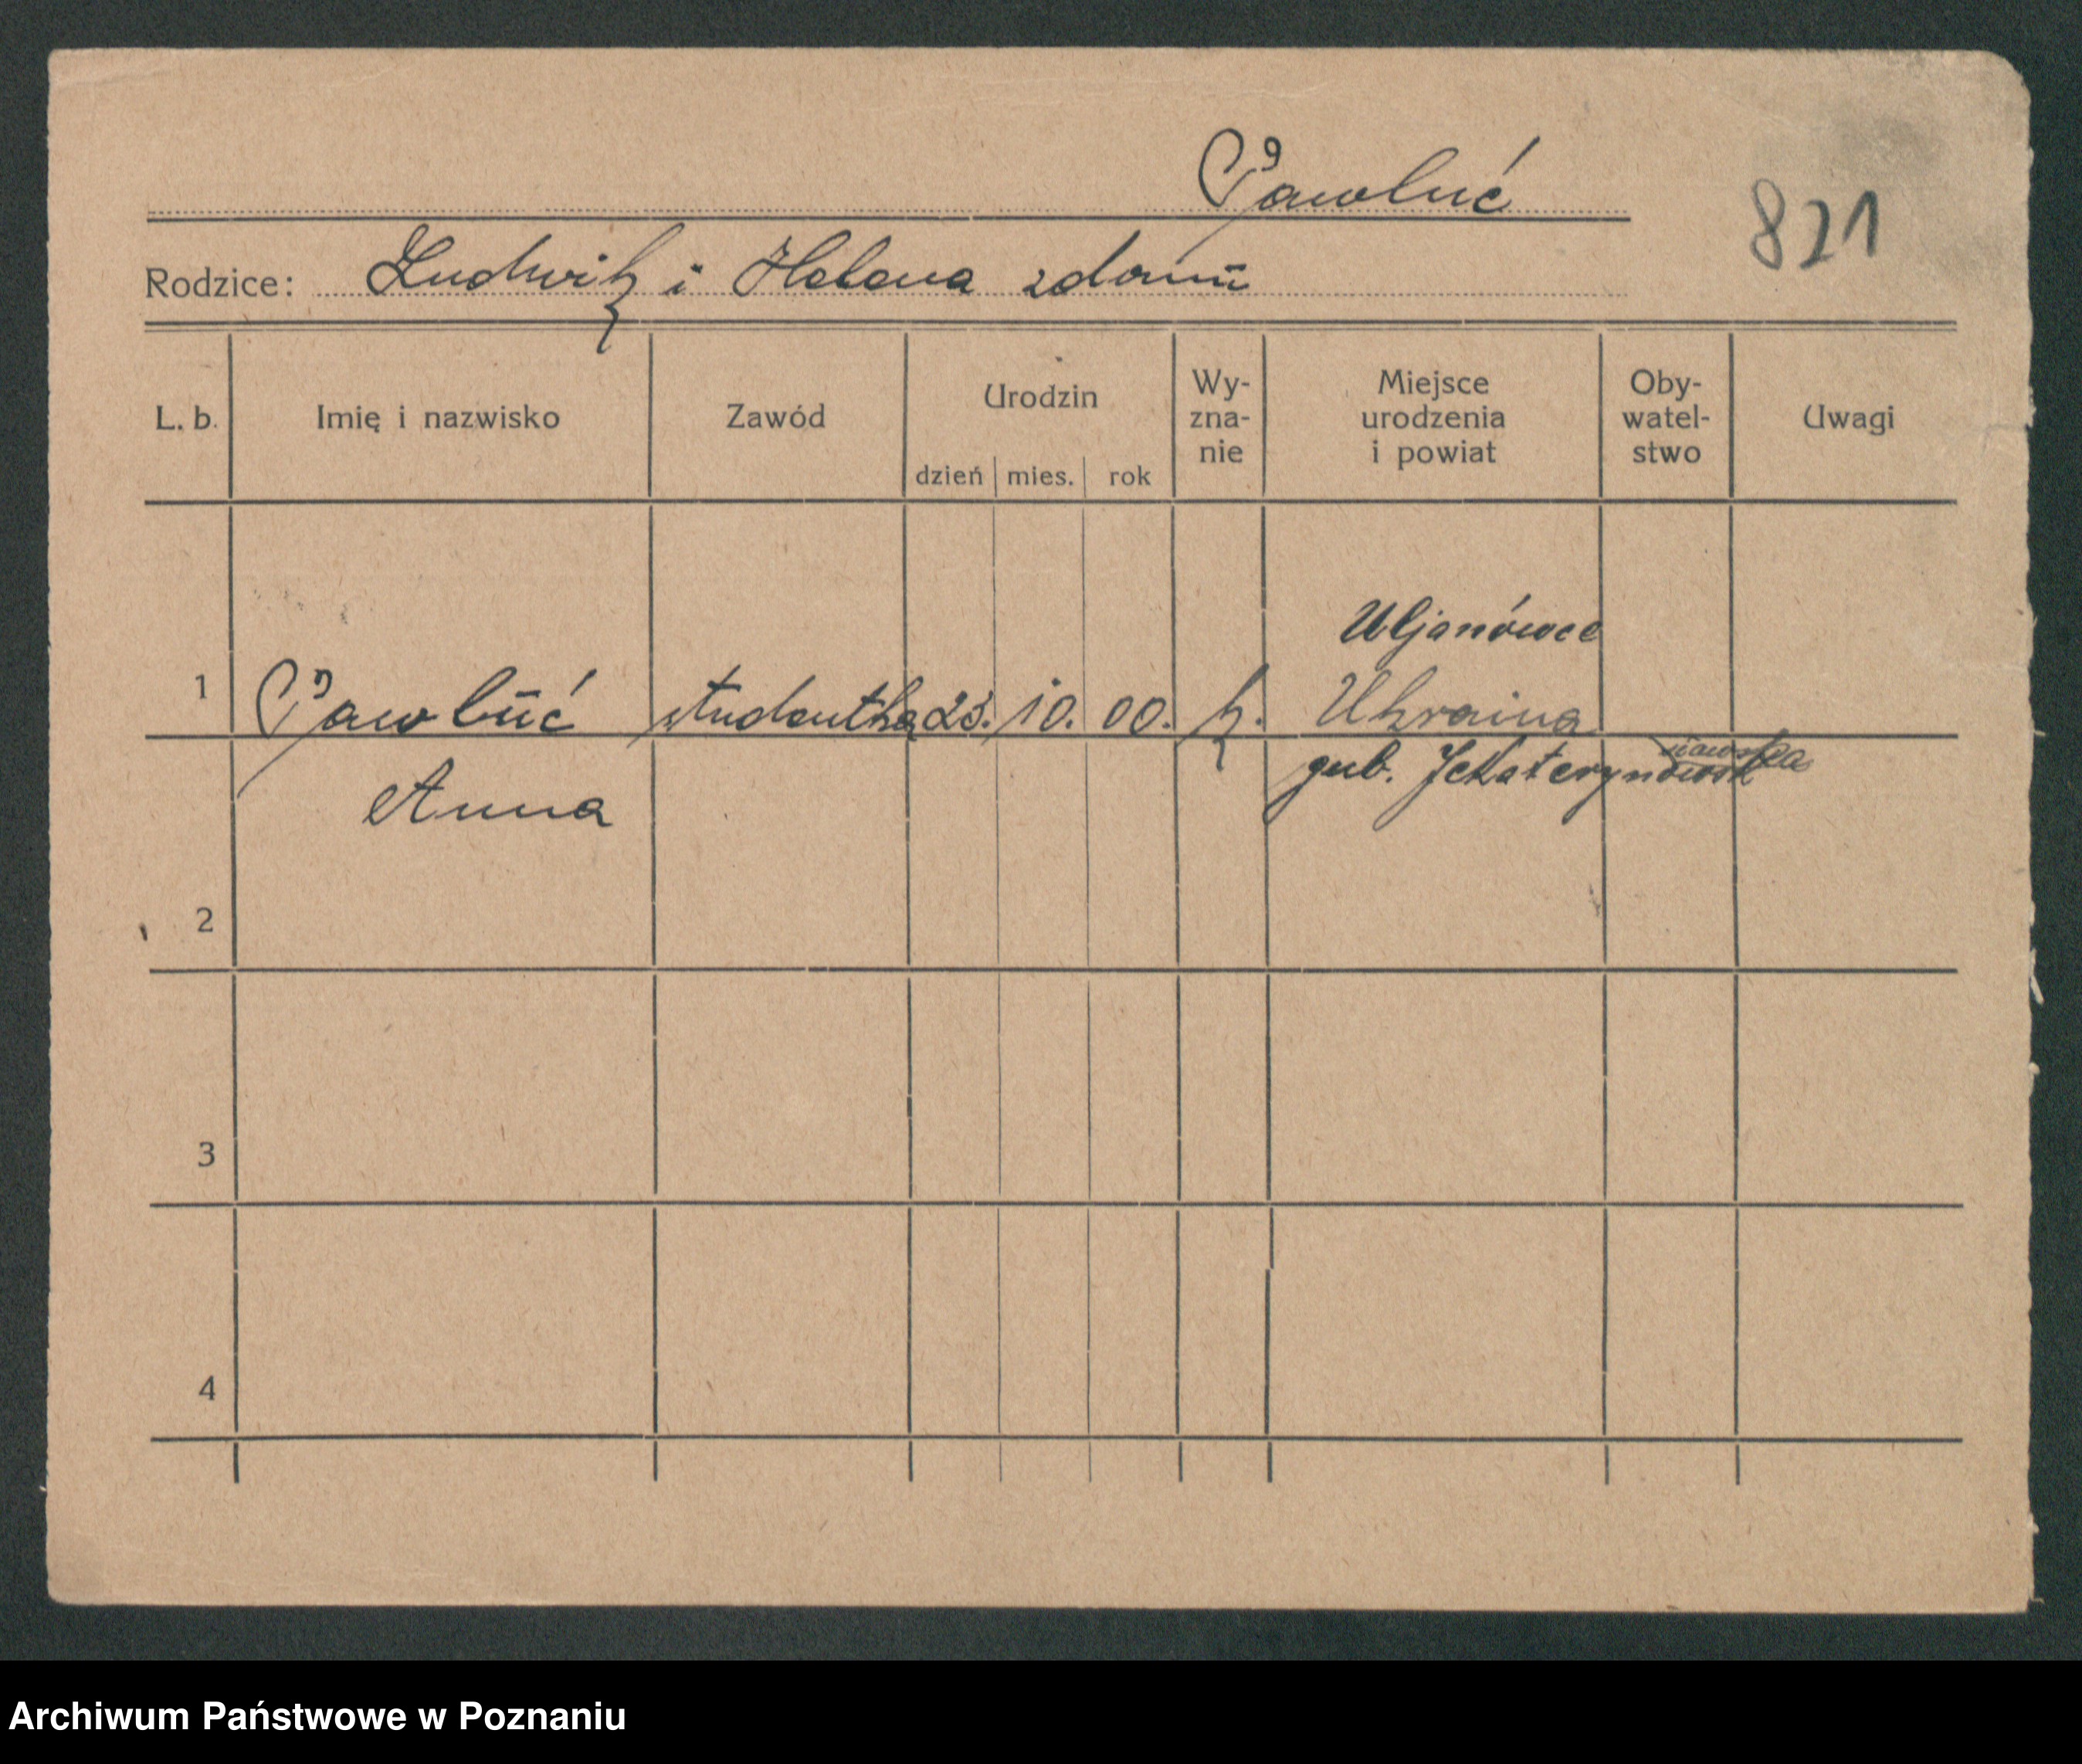 Pawluć
821
Rodzice: Ludwik i Helena z domu
L. b. Imię i nazwisko Zawód Urodzin dzień mies. rok Wy-zna-nie Miejsce urodzenia i powiat Oby-watel-stwo Uwagi
Uljanówce
1 Pawluć studentka 23. 10. 00. k. Ukraina
Anna gub. Jekaterynosławska
2
3
4
Archiwum Państwowe w Poznaniu